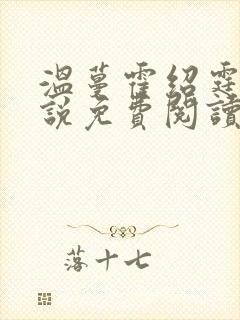 溫蔓霍紹霆
說免費閱讀
落十七